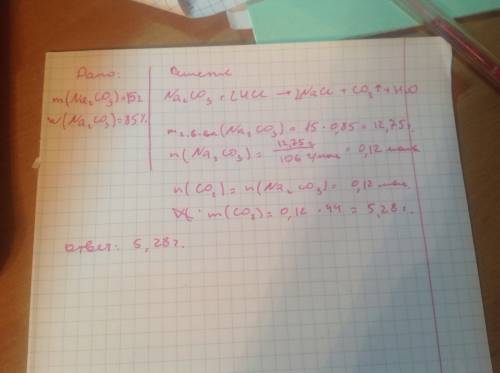 Дано:
m(Na₂CO₃)=15г
w(Na₂CO₃)=85%
Решение
Na₂CO₃ + 2HCl → 2NaCl + CO₂↑ + H₂O
(Na₂CO₃) = 15 · 0,85 = 12,75г.
n(Na₂CO₃) = 12,75 г / 106 г/моль = 0,12 моль
n(CO₂) = n(Na₂CO₃) = 0,12 моль.
m(CO₂) = 0,12 · 44 = 5,28 г.
Ответ: 5,28 г.